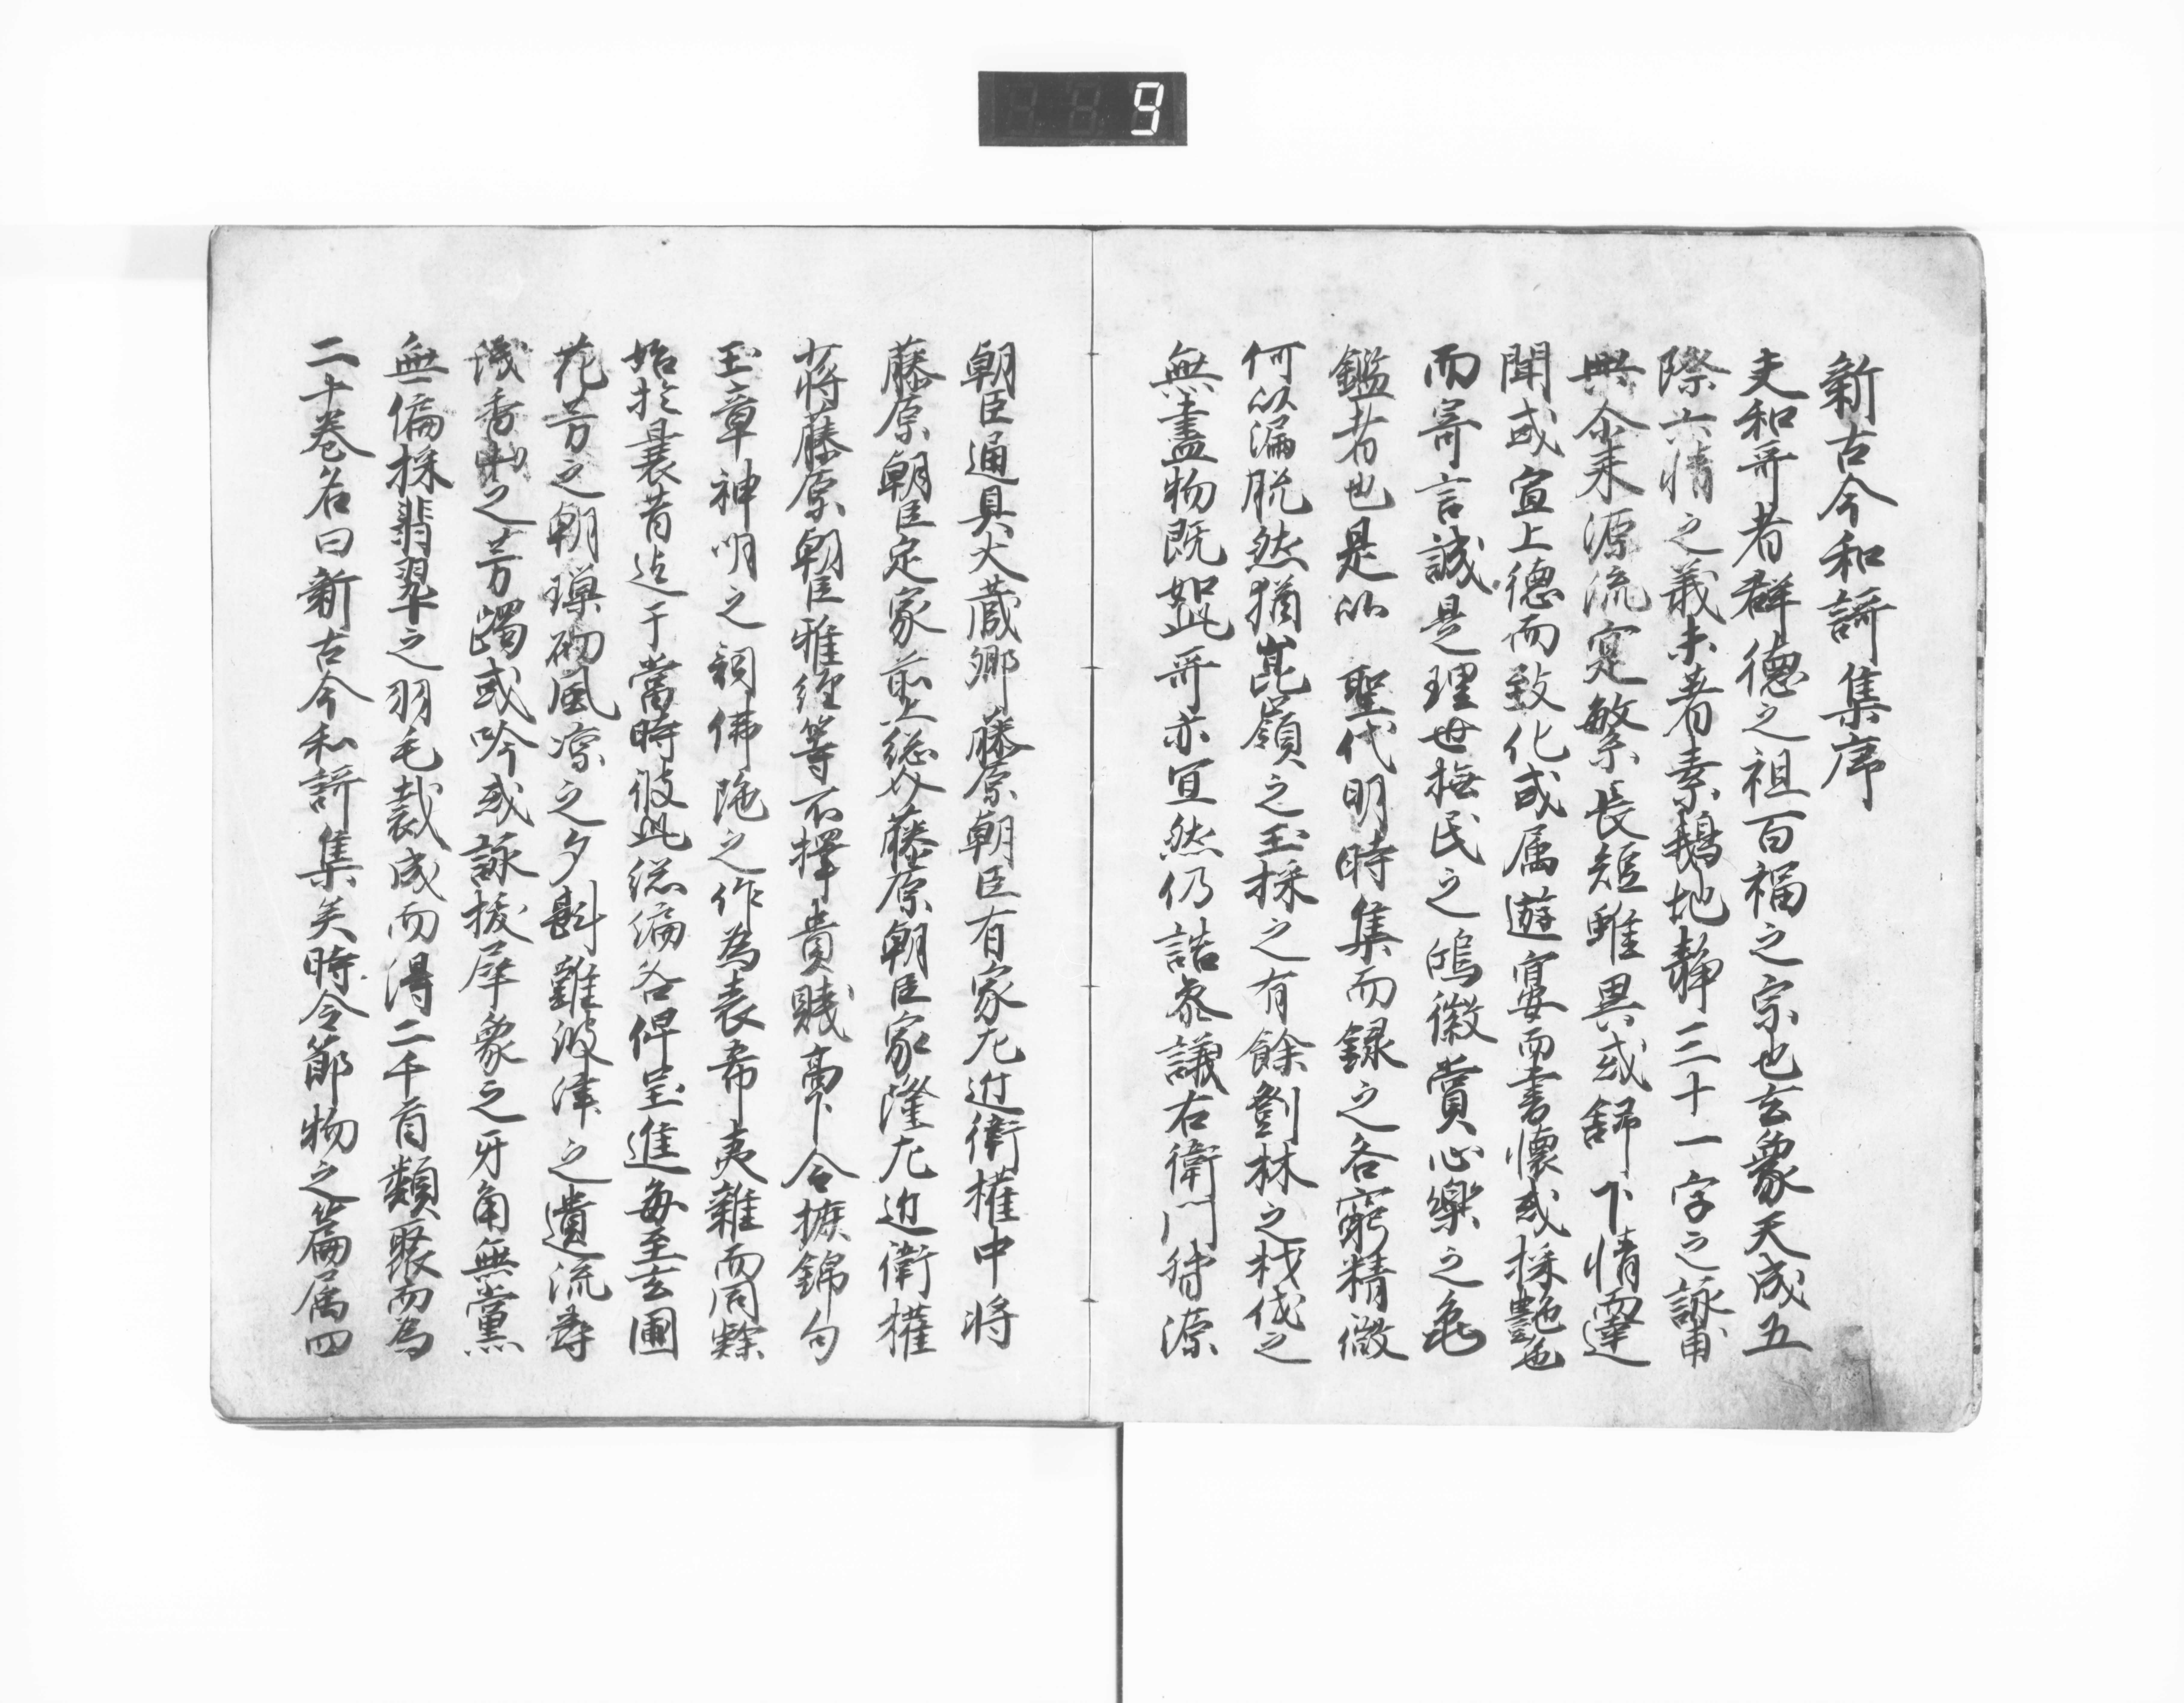 9
新古今和謌集序
夫和哥者群德之祖百福之宗也玄象天成五
際六情之義未著素鵝地靜三十一字之詠甫
興尒来源流寔繁長短雖異或舒下情而達
聞或宣上德而致化或属遊宴而書懐或採艶色
而寄言誠是理世撫民之鴻徽賞心樂之龜
鑑者也是以 聖代明時集而録之各窮精微
何以漏脱然猶崑嶺之玉採之有餘鄧林之材伐之
無盡物既如此哥亦宜然仍詔参議右衛門督源
朝臣通具大蔵卿藤原朝臣有家左近衛權中将
藤原朝臣定家前上総介藤原朝臣家隆左近衛權
少将藤原朝臣雅經等不擇貴賤高下令摭錦句
玉章神明之詞佛陁之作為表希夷雜而同隸
始於曩昔迄于當時彼此総編各俾呈進毎至玄圃
花芳之朝璅砌風凉之夕斟難波津之遺流尋
淺香山之芳躅或吟或詠抜犀象之牙角無黨
無偏採翡翠之羽毛裁成而得二千首類聚而為
二十巻名曰新古今和謌集矣時令節物之篇属四